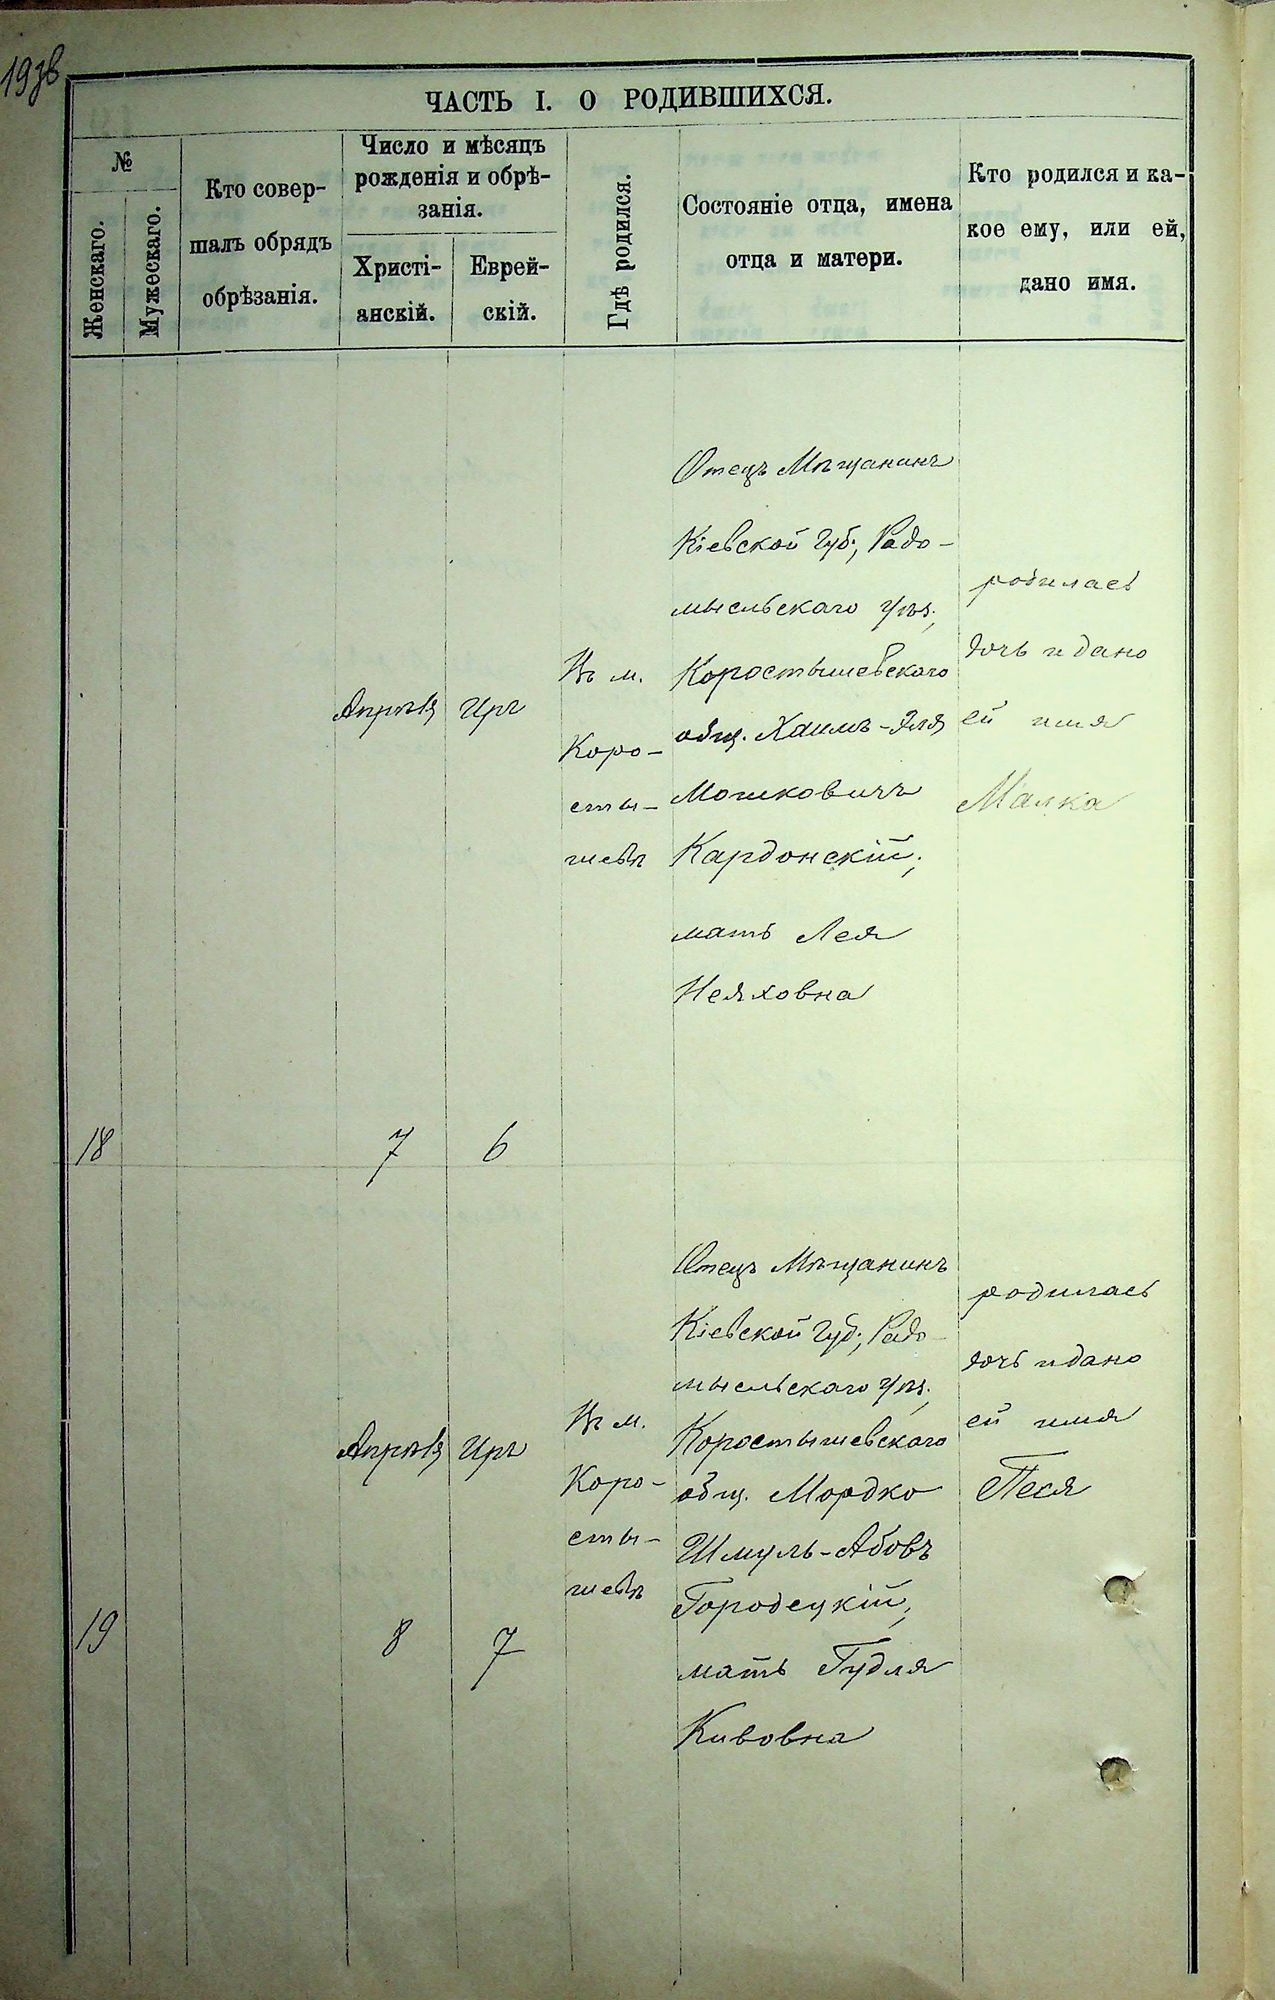 19зв
ЧАСТЬ I. О РОДИВШИХСЯ.
№
Женскаго.
Мужескаго.
Кто совер-
шалъ обрядъ
обрѣзанія.
Число и мѣсяцъ
рожденія и обрѣ-
занія.
Христі-
анскій.
Еврей-
скій.
Гдѣ родился.
Состояніе отца, имена
отца и матери.
Кто родился и ка-
кое ему, или ей,
дано имя.
18
Апрѣля
7
Иръ
6
Въ м.
Коро-
сты-
шевѣ
Отецъ Мѣщанинъ
Кіевской Губ., Радо-
мысльскаго уѣз.,
Коростышевскаго
общ. Хаимъ-Эля
Мошковичъ
Кардонскій,
мать Лея
Неяховна
родилась
дочь и дано
ей имя
Малка
19
Апрѣля
8
Иръ
7
Въ м.
Коро-
сты-
шевѣ
Отецъ Мѣщанинъ
Кіевской Губ., Радо-
мысльскаго уѣз.,
Коростышевскаго
общ. Мордко
Шмуль-Абовъ
Городецкій,
мать Гудля
Кивовна
родилась
дочь и дано
ей имя
Песя